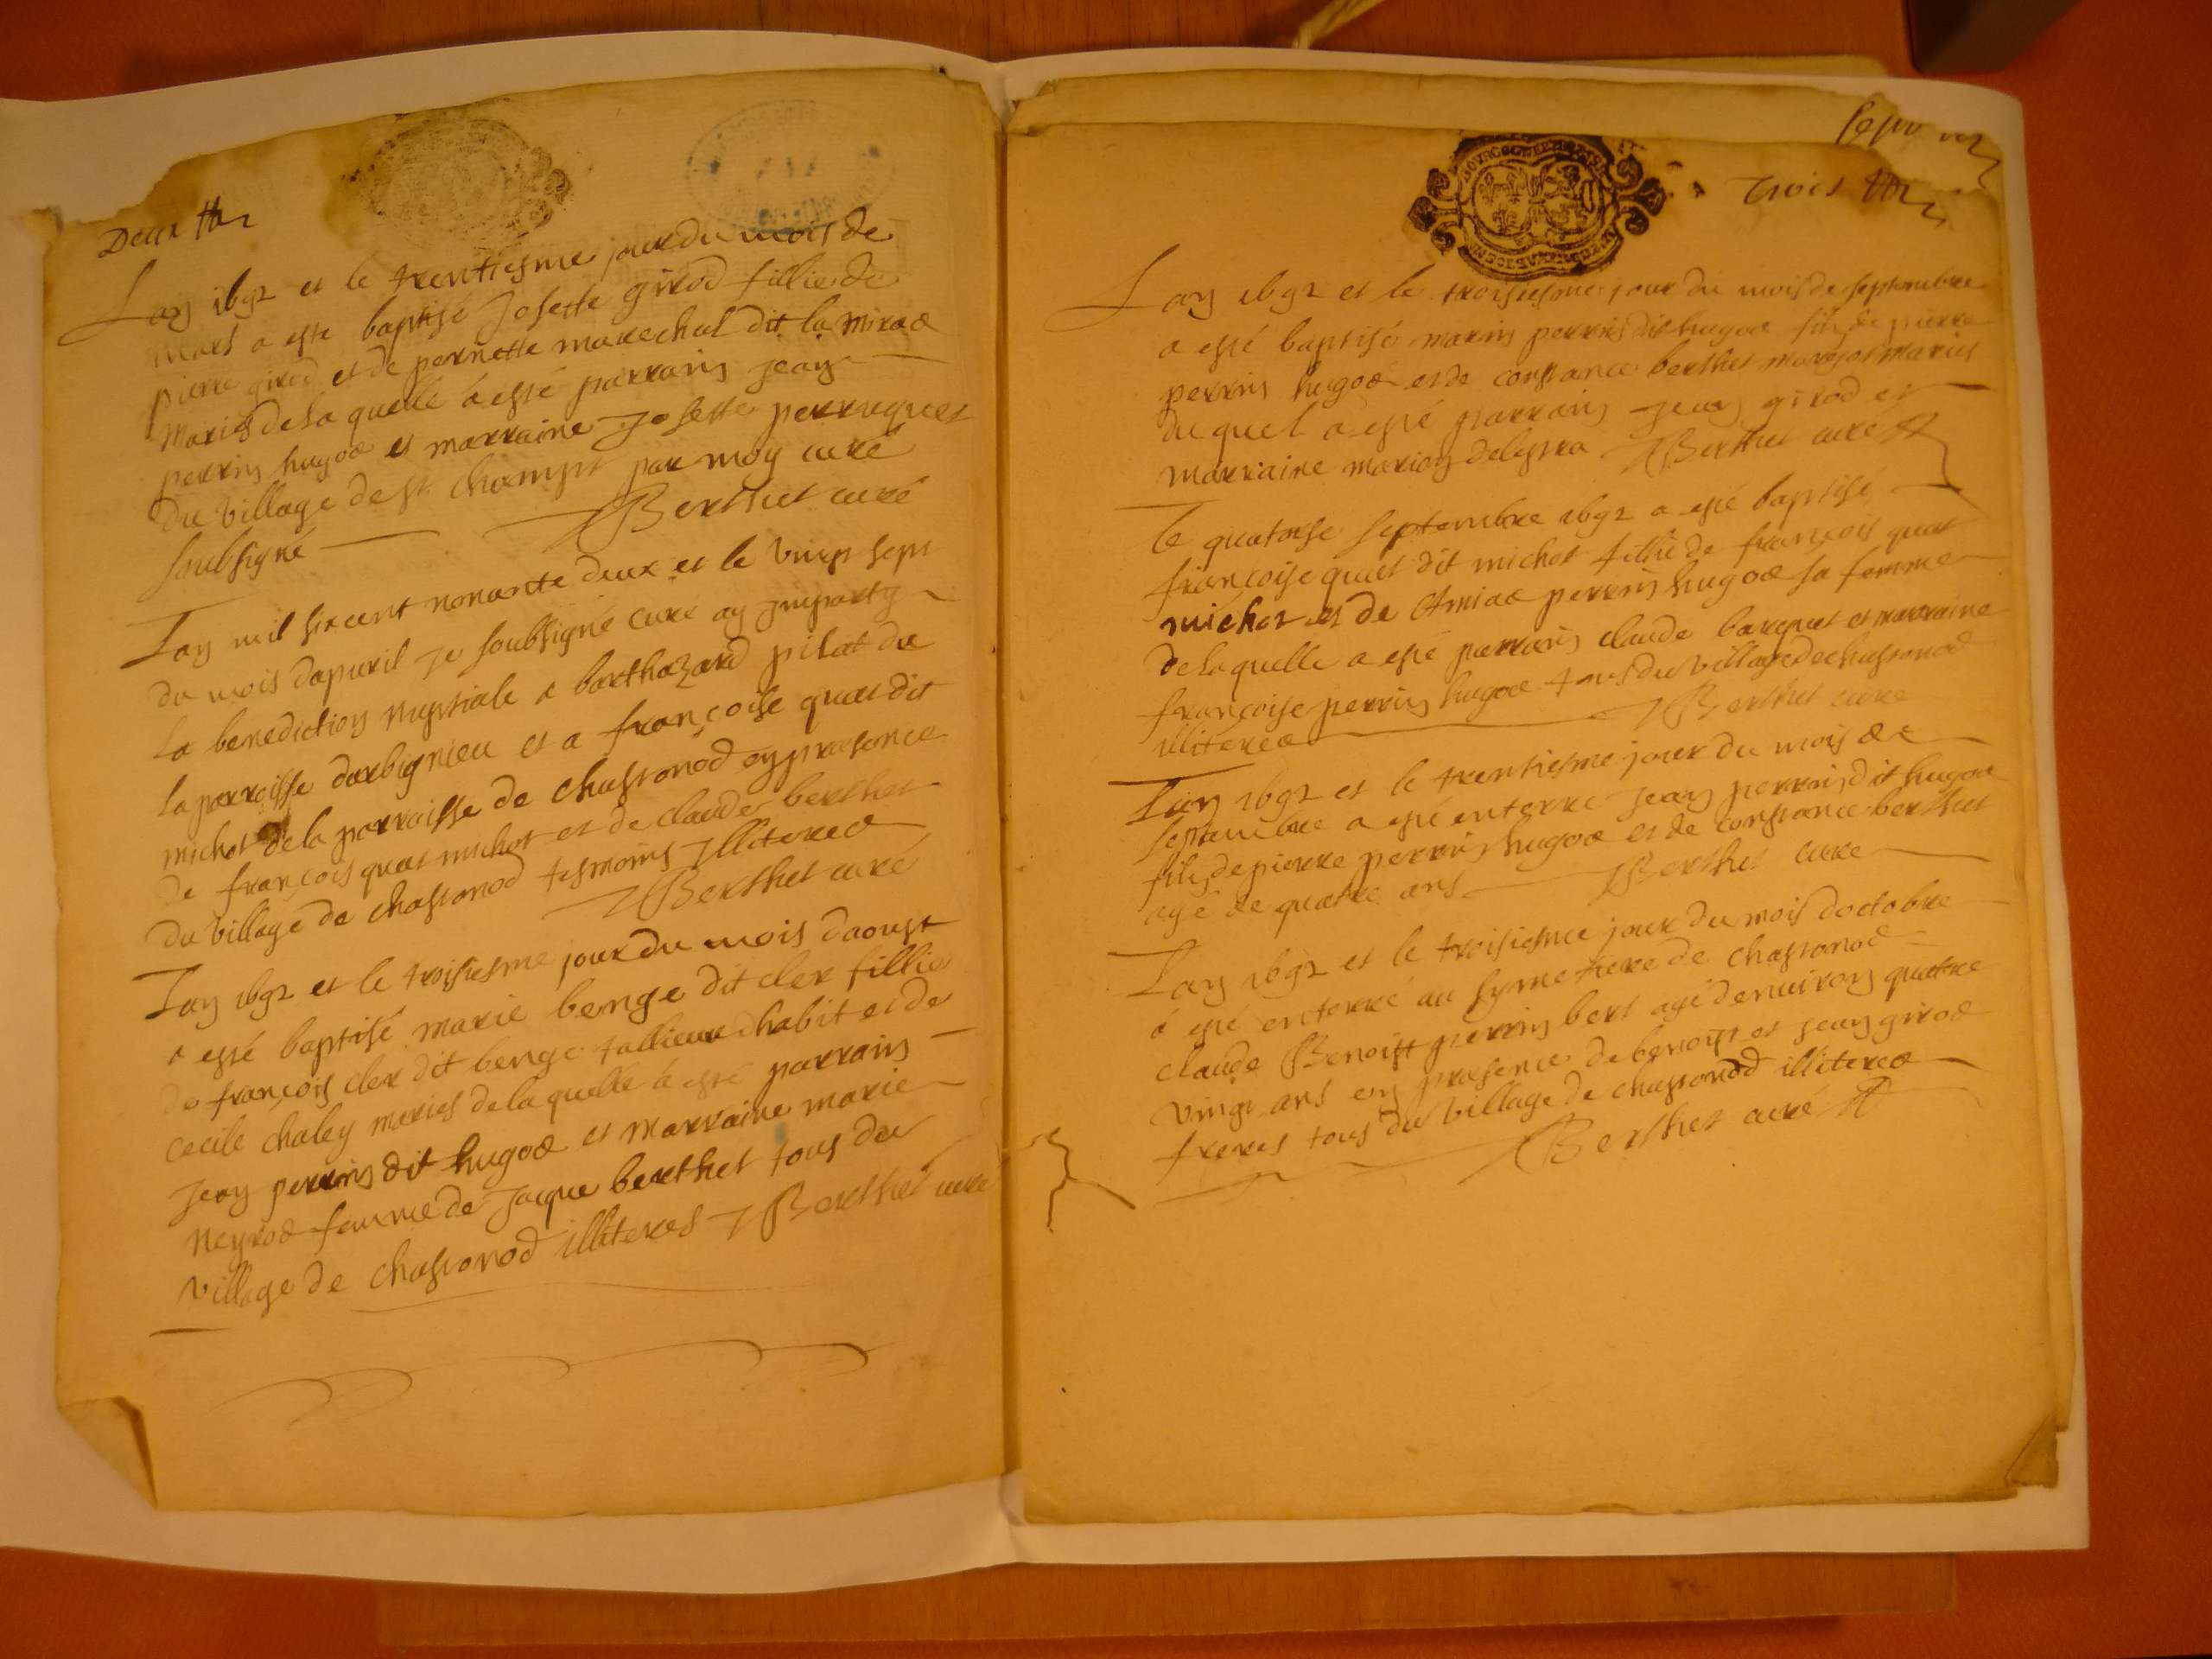 Deux
Lan 1692 et le trentiesme jour du mois de
Mars a este baptisé Josette girod fillie de
pierre girod et de pernette marechal dit la Mirad
Mariés de la quelle á esté parrains jean
perrin hugod et marraine Josette perruquet
du village de st champt par moy curé
soubsigné Berthet curé
Lan mil sixcent nonante deux et le vingt sept
du mois dapuril je soubsigné curé ay jmparty
la benediction nuptiale a barthazard pilat de
la parroisse darbignieu et a françoise quat dit
michot de la parroisse de chastonod en presence
de françois quat michot et de claude berthet
du village de chastonod tesmoins Illitered
Berthet curé
Lan 1692 et le troisiesme jour du mois daoust
a esté baptisé marie benge dit cler fillie
de françois cler dit benge tallieur dhabit et de
cecile chaley mariés de la quelle á esté parrain
jean perrin dit hugod et marraine marie
Neyrod femme de jacque berthet tous du
village de chastonod illiteres Berthet curé
trois
Lan 1692 et le troisiesme jour du mois de septembre
a esté baptisé marin perrin dit hugod fils de pierre
perrin hugod et de constance berthet mariés
du quel a esté parrain jean girod et
marraine marion delestra Berthet curé
Le quatorse septembre 1692 a esté baptisé
françoise quat dit michot fillie de françois quat
michot et de Amiad perrin hugod sa femme
de la quelle a esté parrain claude barquet et marraine
françoise perrin hugod tous du village de chastonod
illitered Berthet curé
Lan 1692 et le trentiesme jour du mois de
septembre a esté enterré jean perrin dit hugod
fils de pierre perrin hugod et de constance berthet
agé de quatre ans Berthet curé
Lan 1692 et le troisiesme jour du mois doctobre
á esté enterré au symetiere de chastonod
claude Benoist perrin bert agé denuiron quatre
vingt ans en presence de benoist et jean girod
freres tous du village de chastonod illitered
Berthet curé